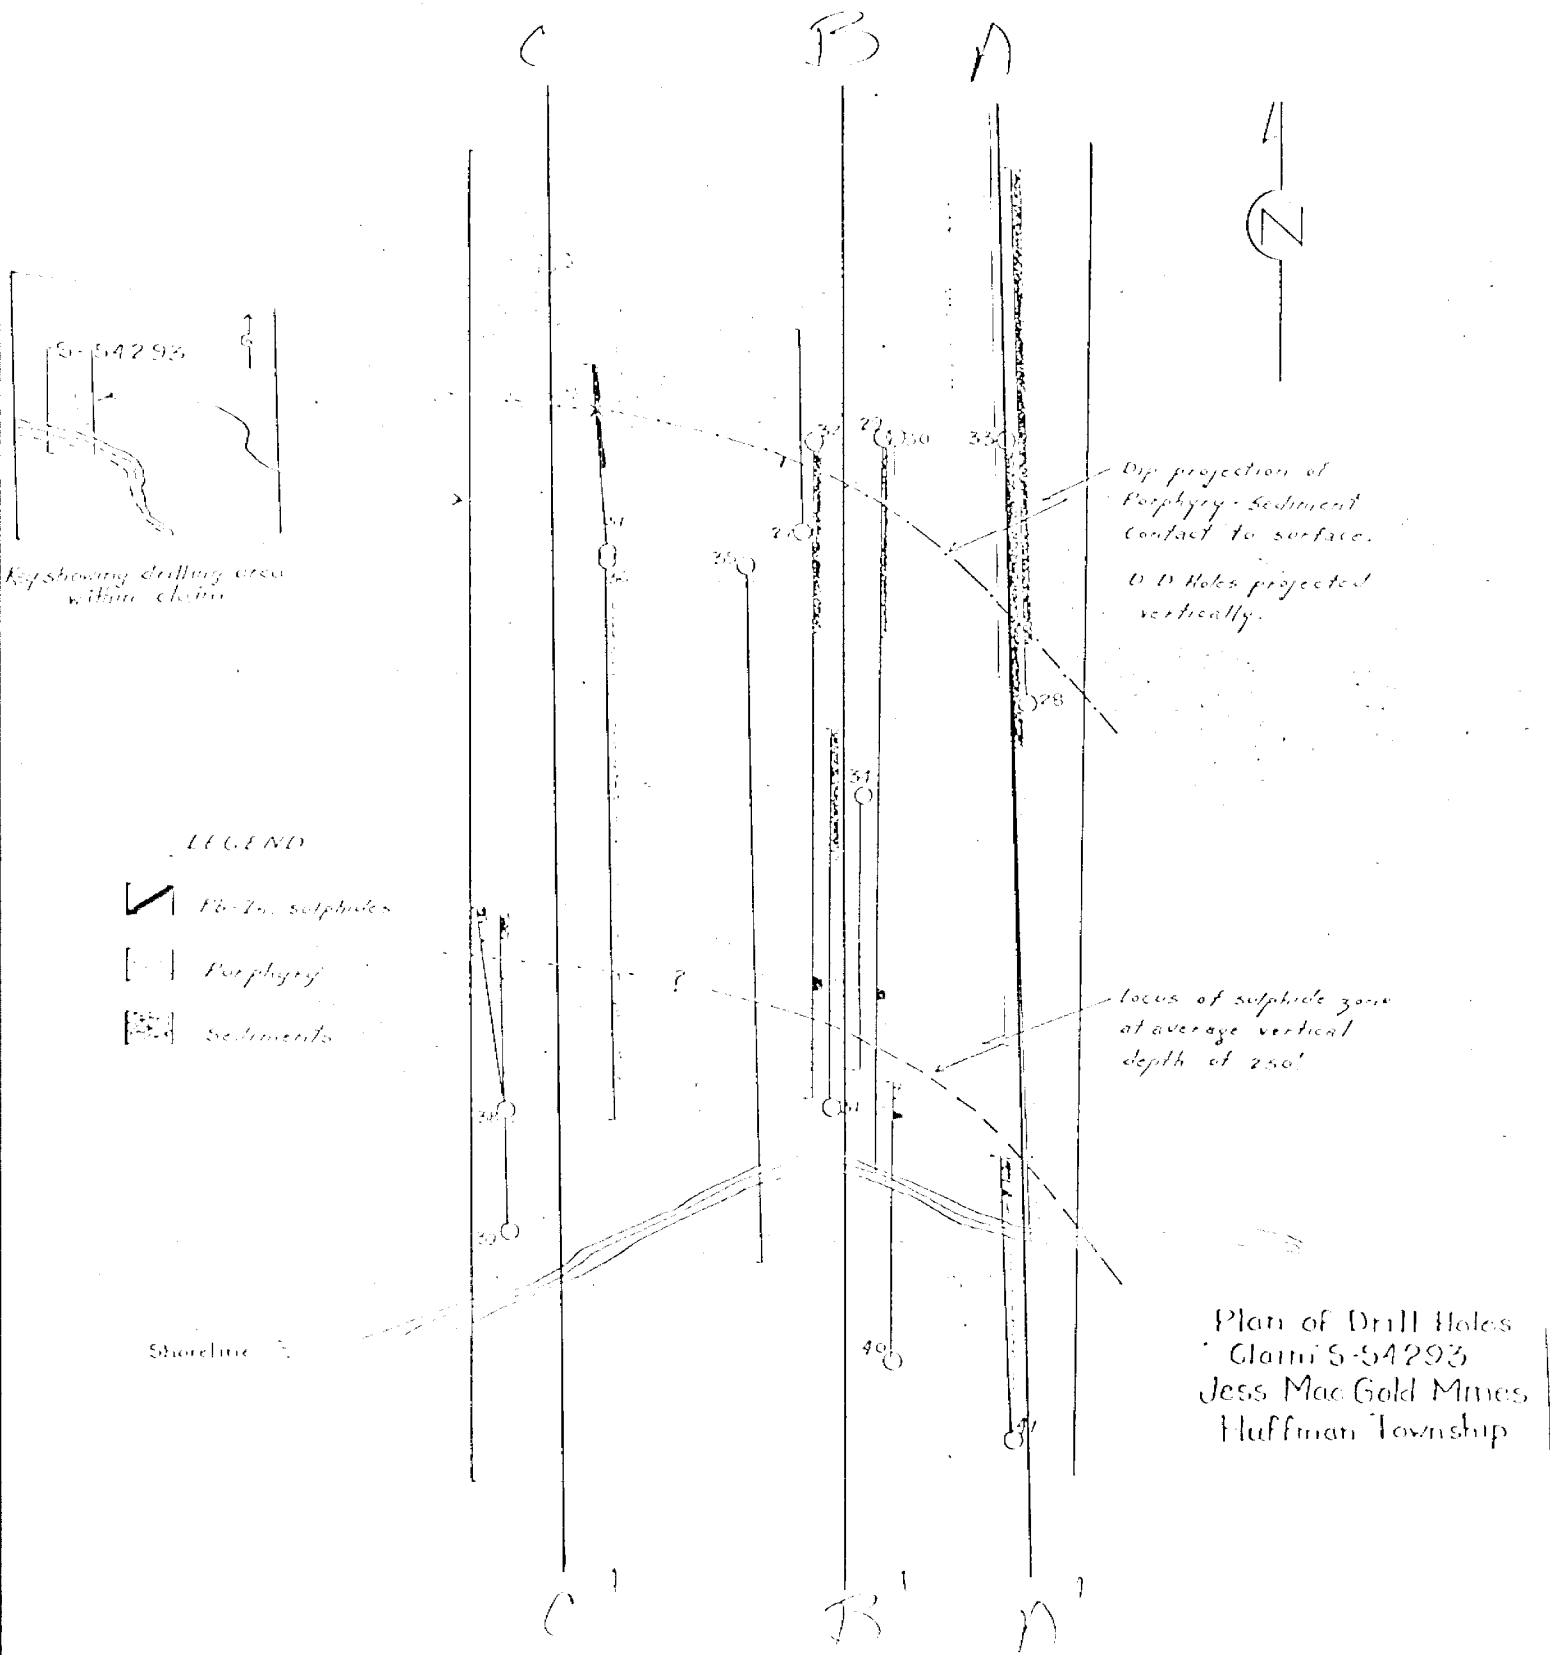 C
B
A
N
S-54293
Key showing drilling area
within claim
32
29
30
33
27
35
28
31
38
39
40
Dip projection of
Porphyry-Sediment
Contact to surface.
D D Holes projected
vertically.
LEGEND
Pb-Zn. sulphides
Porphyry
Sediments
?
locus of sulphide zone
at average vertical
depth of 250'
Shoreline
Plan of Drill Holes
Claim S-54293
Jess Mac Gold Mines
Huffman Township
C'
B'
A'